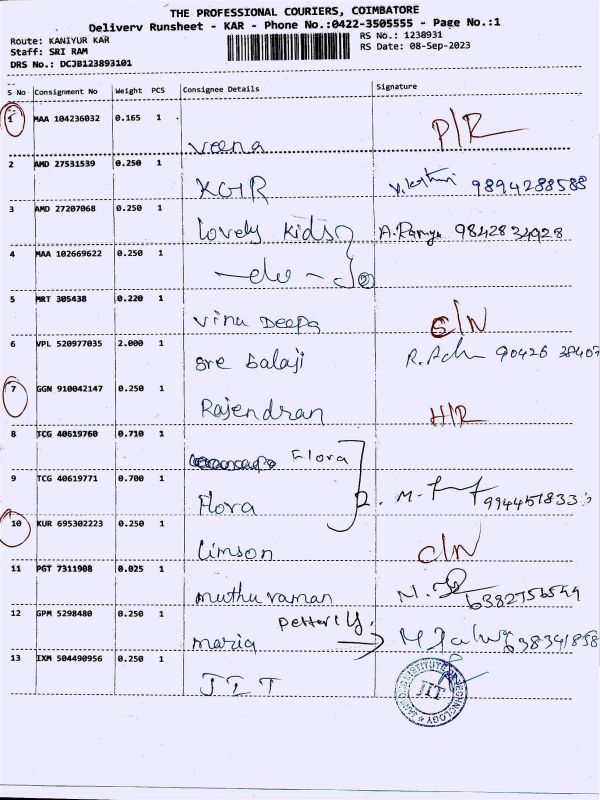 THE PROFESSIONAL COURIERS, COIMBATORE
Delivery Runsheet - KAR - Phone No.:0422-3505555 - Page No.:1
Route: KANIYUR KAR
RS No.: 1238931
Staff: SRI RAM
RS Date: 08-Sep-2023
DRS No.: DCJB123893101
S No Consignment No Weight PCS Consignee Details Signature
1 MAA 104236032 0.165 1
veena P/R
2 AMD 27531539 0.250 1
KGR 9894288588
3 AMD 27207068 0.250 1
lovely kids A. Ramya 9842834928
4 MAA 102669622 0.250 1
- do - 2
5 MRT 305438 0.220 1
vinu Deepa C/N
6 VPL 520977035 2.000 1
sre balaji 90426 38407
7 GGN 910042147 0.250 1
Rajendran H/R
8 TCG 40619760 0.710 1
Flora
9 TCG 40619771 0.700 1
Flora 2. M.
10 KUR 695302223 0.250 1
Limson C/N
11 PGT 7311908 0.025 1
muthu raman 6382756549
12 GPM 5298480 0.250 1
maria
13 IXM 504490956 0.250 1
JIT
INSTITUTE OF TECHNOLOGY
JIT